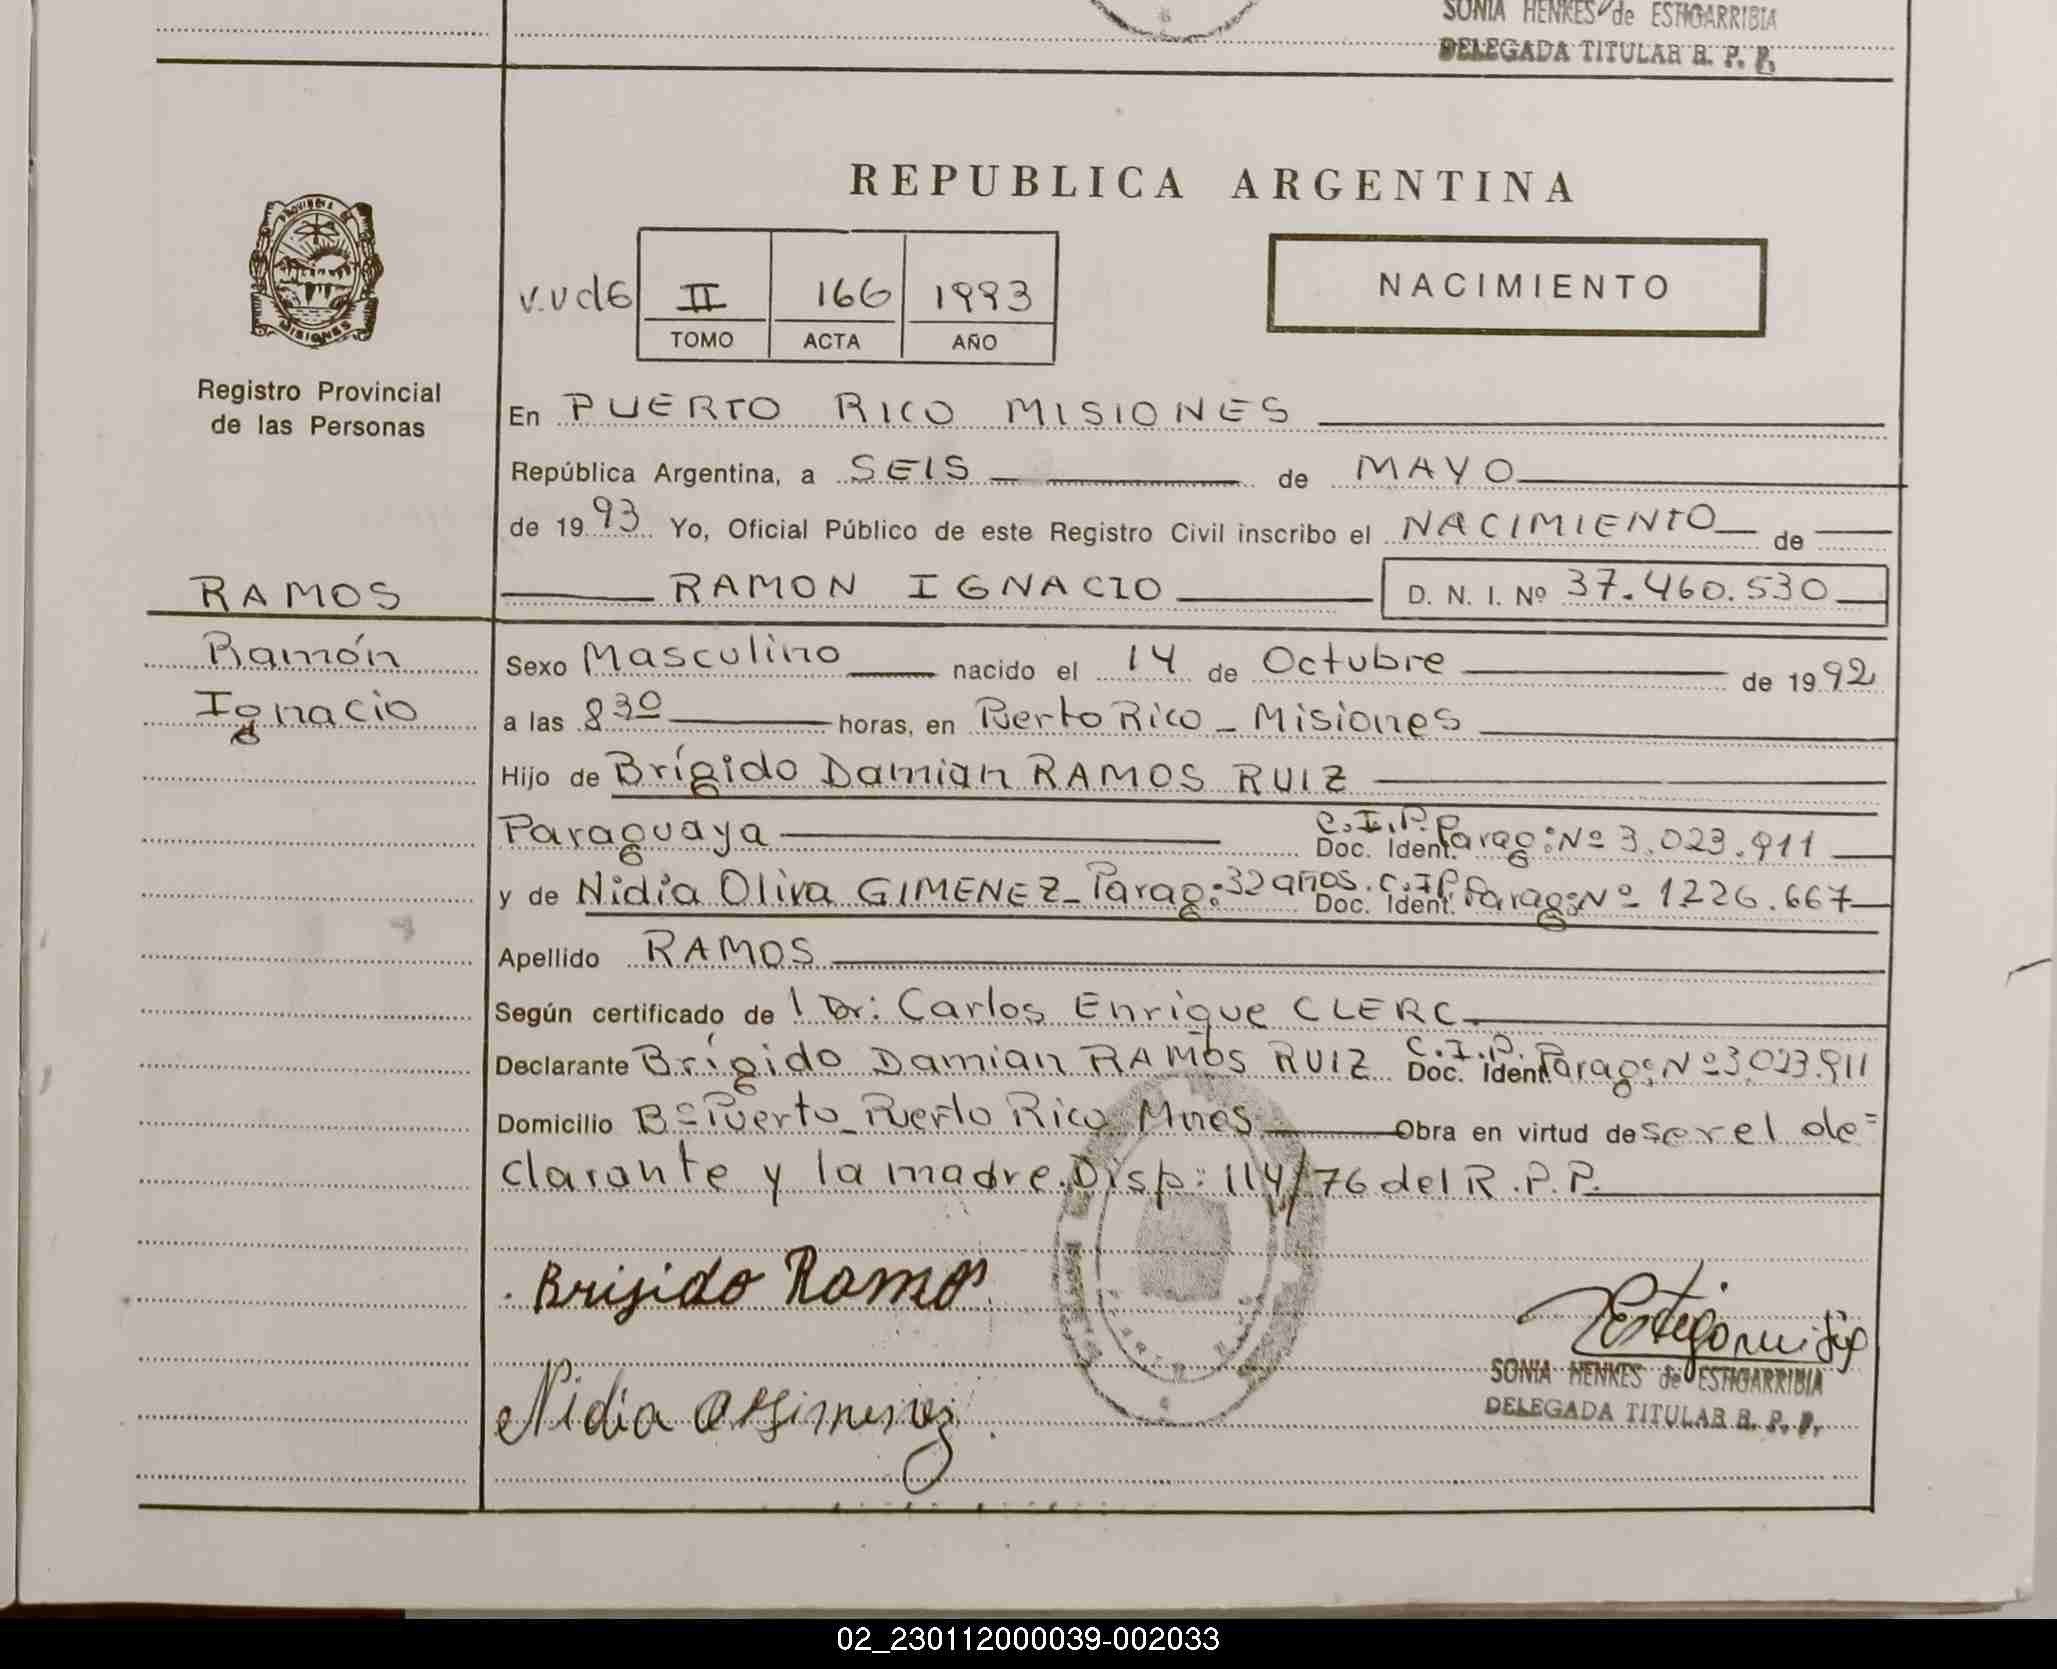 SONIA HENKES de ESTIGARRIBIA
DELEGADA TITULAR R. P. P.
REPUBLICA ARGENTINA
PROVINCIA DE
MISIONES
Registro Provincial
de las Personas
V.Vd6 II 166 1993
TOMO ACTA AÑO
NACIMIENTO
En PUERTO RICO MISIONES
República Argentina, a SEIS de MAYO
de 19 93 Yo, Oficial Público de este Registro Civil inscribo el NACIMIENTO de
RAMOS
RAMON IGNACIO D. N. I. Nº 37.460.530
Ramón
Ignacio
Sexo Masculino nacido el 14 de Octubre de 19 92
a las 8 30 horas, en Puerto Rico - Misiones
Hijo de Brígido Damian RAMOS RUIZ
Paraguaya C.I.P. Doc. Ident. Parag: Nº 3.023.911
y de Nidia Oliva GIMENEZ - Parag: 32 años. C.I.P. Doc. Ident. Parag: Nº 1.226.667
Apellido RAMOS
Según certificado de l Dr: Carlos Enrique CLERC
Declarante Brígido Damian RAMOS RUIZ C.I.P. Doc. Ident. Parag: Nº 3.023.911
Domicilio Bº Puerto - Puerto Rico Mnes Obra en virtud de ser el de=
clarante y la madre. Disp: 114/76 del R.P.P.
Brigido Ramos
Nidia O Gimenez
SONIA HENKES de ESTIGARRIBIA
DELEGADA TITULAR R. P. P.
02_230112000039-002033